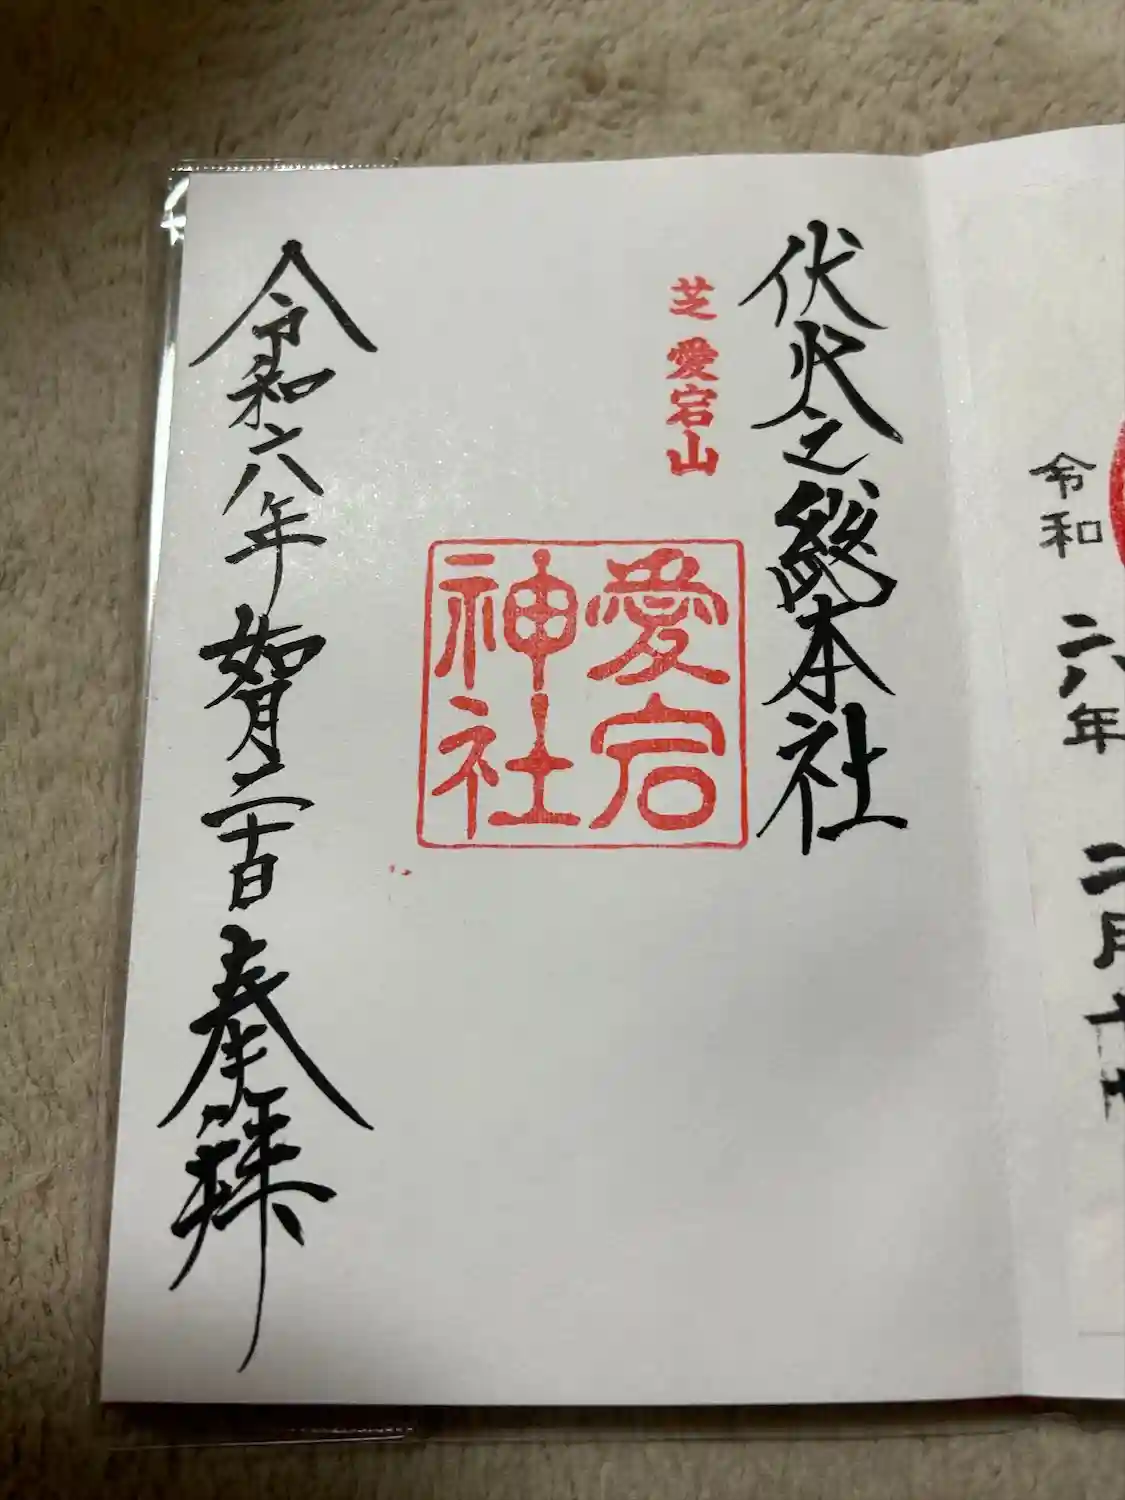 令和六年二月十
伏火之総本社
芝 愛宕山
愛宕
神社
令和六年如月二十日奉拝